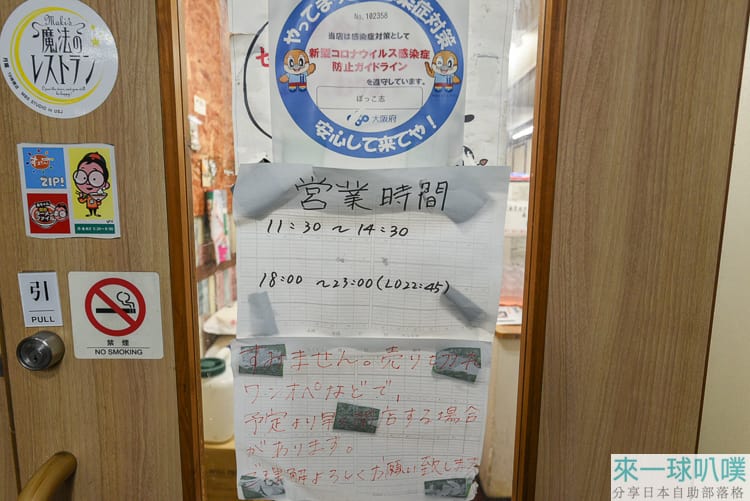 Maki's
魔法の
レストラン
MBS STUDIO in USJ
ZIP!
引
PULL
禁煙
NO SMOKING
No.102358
感染症対策
当店は感染症対策として
新型コロナウイルス感染症
防止ガイドライン
を遵守しています。
ぼっこ志
大阪府
安心して来てや!
営業時間
11:30 ～ 14:30
18:00 ～23:00(LO22:45)
すみません。売り切れ
ワンオペなどで、
予定より早 店する場合
があります。
理解よろしくお願い致します
來一球叭噗
分享日本自助部落格